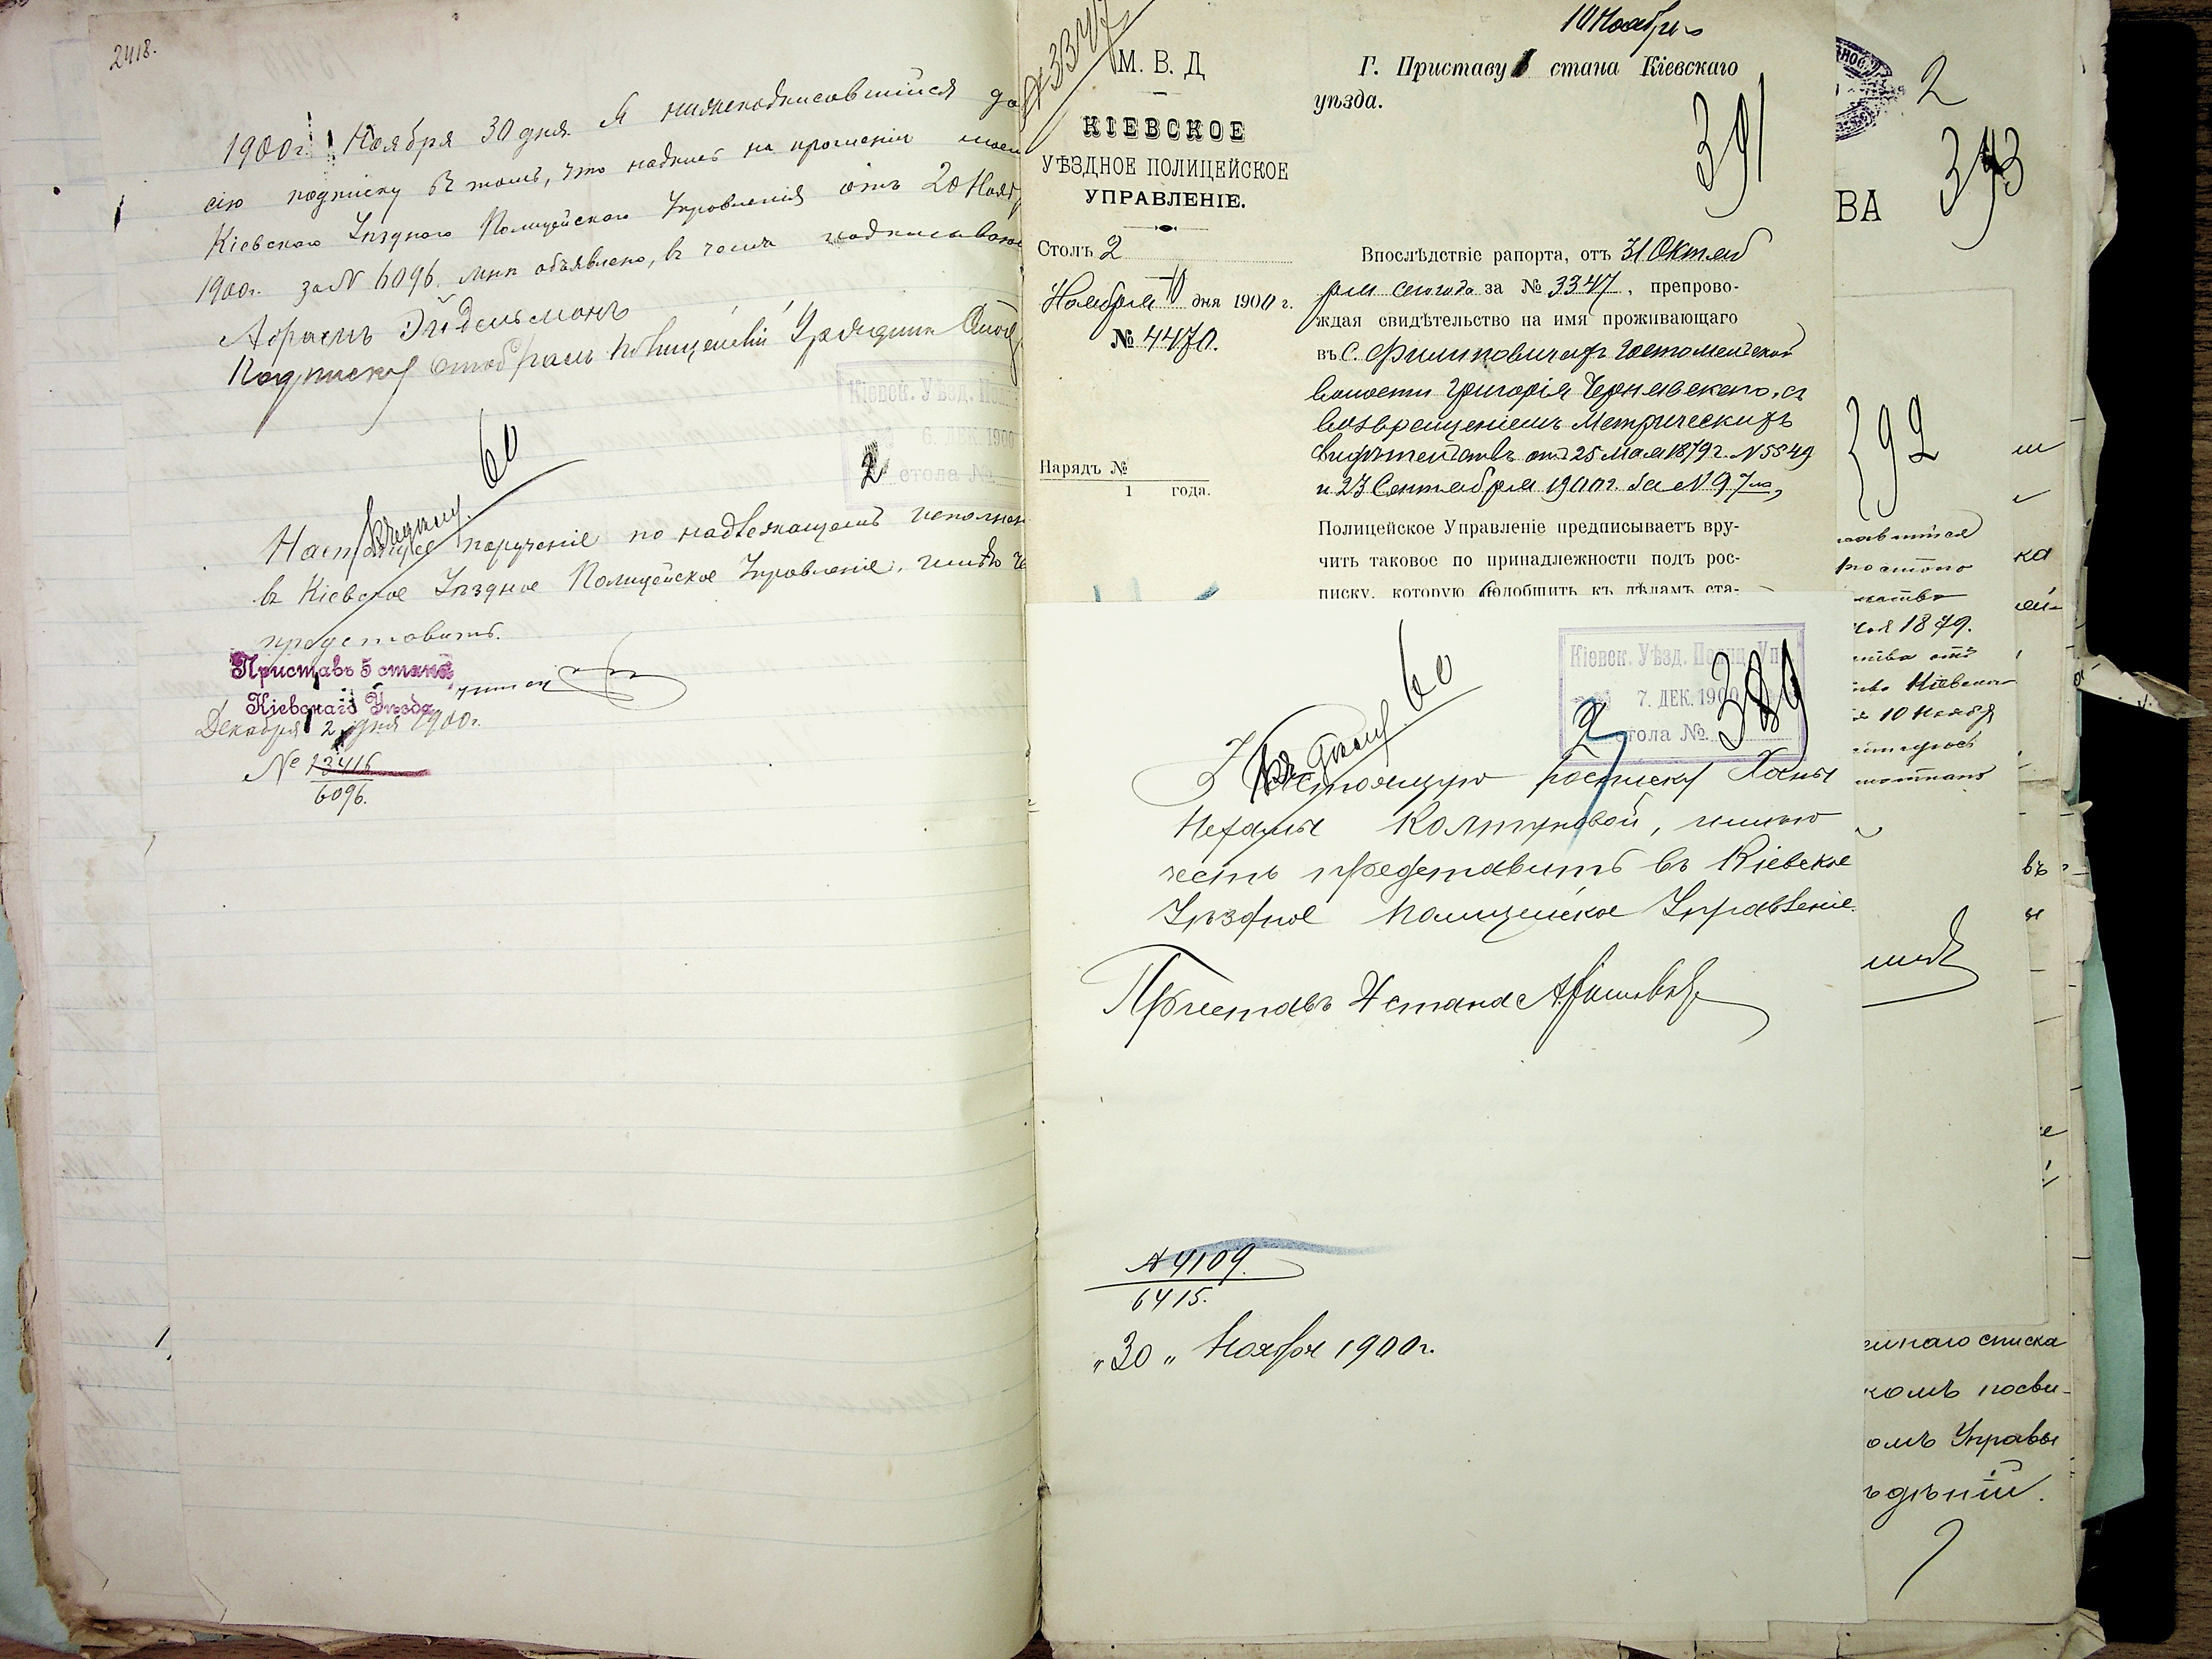 2418.
1900г. Ноября 30 дня Я нижеподписавшийся да
сію подписку въ томъ, что надпись на прошеніи моем
Кіевскаго Уѣзднаго Полицейскаго Управленія отъ 20 Нояб
1900г. за № 6096. мнѣ объявлено, въ чемъ подписываюс
Абрамъ Эйдельманъ
Подписку отобралъ Полицейскій Урядникъ
Кіевск. Уѣзд. Пол
6. ДЕК. 1900
2 стола №
60
Къ дѣлу
Настоящее порученіе по надлежащемъ исполнен
въ Кіевское Уѣздное Полицейское Управленіе, имѣю че
представить.
Приставъ 5 стана
Кіевскаго Уѣзда
Декабря 2 дня 1900г.
№ 13416
6096.
№ 3347
М. В. Д
КІЕВСКОЕ
УѢЗДНОЕ ПОЛИЦЕЙСКОЕ
УПРАВЛЕНІЕ.
Столъ 2
Ноября 10 дня 1900 г.
№ 4470.
Нарядъ №
1 года.
10 Ноября
Г. Приставу 1 стана Кіевскаго
уѣзда.
391
Впослѣдствіе рапорта, отъ 31 Октяб
ря сего года за № 3347, препрово-
ждая свидѣтельство на имя проживающаго
въ С. Филиповичахъ Гостомельской
волости Григорія Чернявскаго, съ
возвращеніемъ Метрическихъ
свидѣтельствъ отъ 25 Мая 1879 г. № 5549
и 23 Сентября 1900г. за № 97
Полицейское Управленіе предписываетъ вру-
чить таковое по принадлежности подъ рос-
писку, которую подобщить къ дѣламъ ста-
60
Къ дѣлу
Кіевск. Уѣзд. Полиц. Упр.
7. ДЕК. 1900
2 стола №
389
Настоящую росписку Ханы
Нехамы Колтуновой, имѣю
честь представить въ Кіевское
Уѣздное Полицейское Управленіе.
Приставъ 4 стана
№ 4109.
6415.
„30„ Ноября 1900г.
2
393
ВА
392
ка
1879.
Кіевског
10 Ноября
въ
наго списка
комъ посви-
омъ Управы